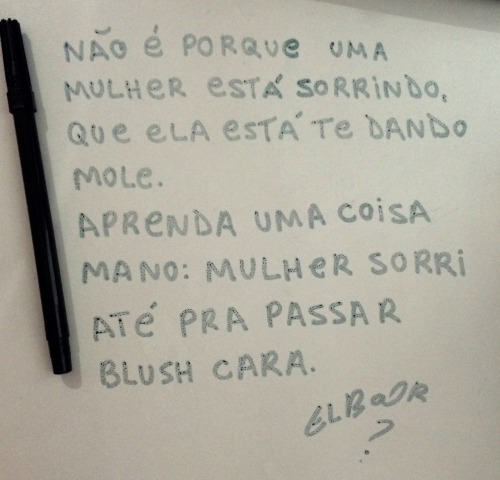 NÃO É PORQUE UMA
MULHER ESTÁ SORRINDO,
QUE ELA ESTÁ TE DANDO
MOLE.
APRENDA UMA COISA
MANO: MULHER SORRI
ATÉ PRA PASSAR
BLUSH CARA.